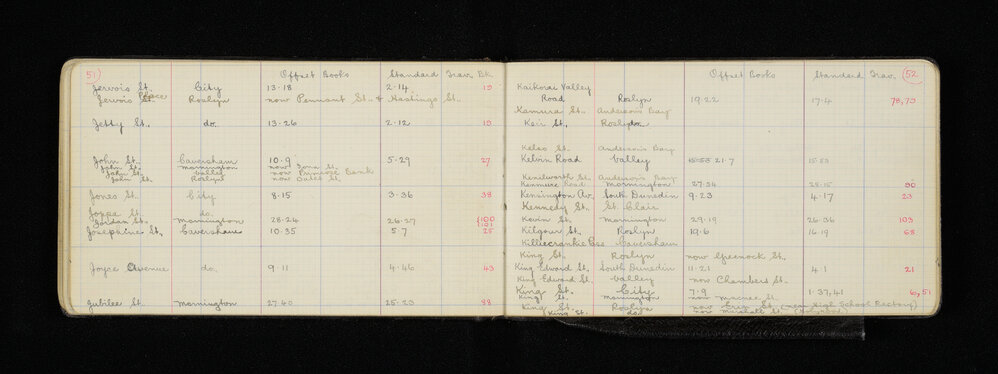 51 Offset Books Standard Trav. Bk.
Jervois St. City 13·18 2·14 19
Jervois Place Roslyn now Pennant St. & Hastings St.
Jetty St. do. 13·26 2·12 19
John St. Caversham 10·9 5·29 27
John St. Mornington now
John St. Valley now Primrose Bank
John St. Roslyn now Oates St.
Jones St. City 8·15 3·36 38
Joppa St. do.
Jordan St. Mornington 28·24 26·27 100 101
Josephine St. Caversham 10·35 5·7 25
Joyce Avenue do. 9·11 4·46 43
Jubilee St. Mornington 27·40 25·23 88
Offset Books Standard Trav. 52
Kaikorai Valley
Road Roslyn 19·22 17·4 78,79
Kamura St. Anderson's Bay
Keir St. Roslyn
Kelso St. Anderson's Bay
Kelvin Road Valley 21·7
Kenilworth St. Anderson's Bay
Kenmure Road Mornington 27·34 28·15 90
Kensington Av. South Dunedin 9·23 4·17 23
Kennedy St. St. Clair
Kevin St. Mornington 29·19 26·36 103
Kilgour St. Roslyn 19·6 16·19 68
Killiecrankie Caversham
King St. Roslyn now Greenock St.
King Edward St. South Dunedin 11·21 4·1 21
King Edward St. Valley now Chambers St.
King St. City 7·9 1·37,41 6,51
King St. Mornington now Macnee St.
King St. Roslyn now Erin St. (near High School Rectory)
(King St. do. now